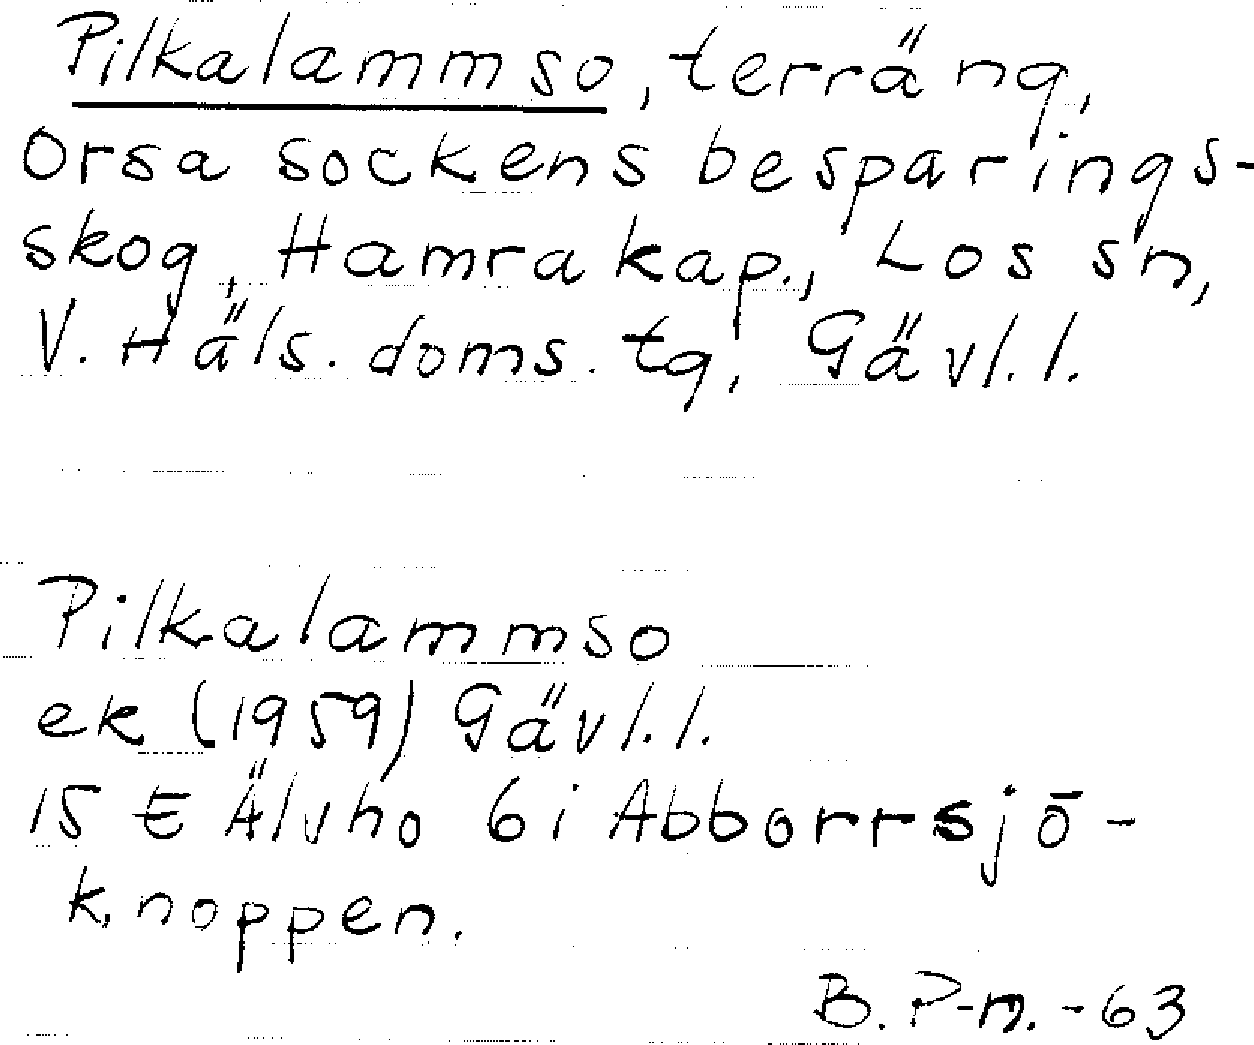 Pilkalammso, terräng,
Orsa sockens besparings-
skog, Hamra kap., Los sn,
V. Häls. doms. tg, Gävl. l.
Pilkalammso
ek (1959) Gävl. l.
15 E Älvho 6i Abborrsjö-
knoppen.
B. P-n. -63